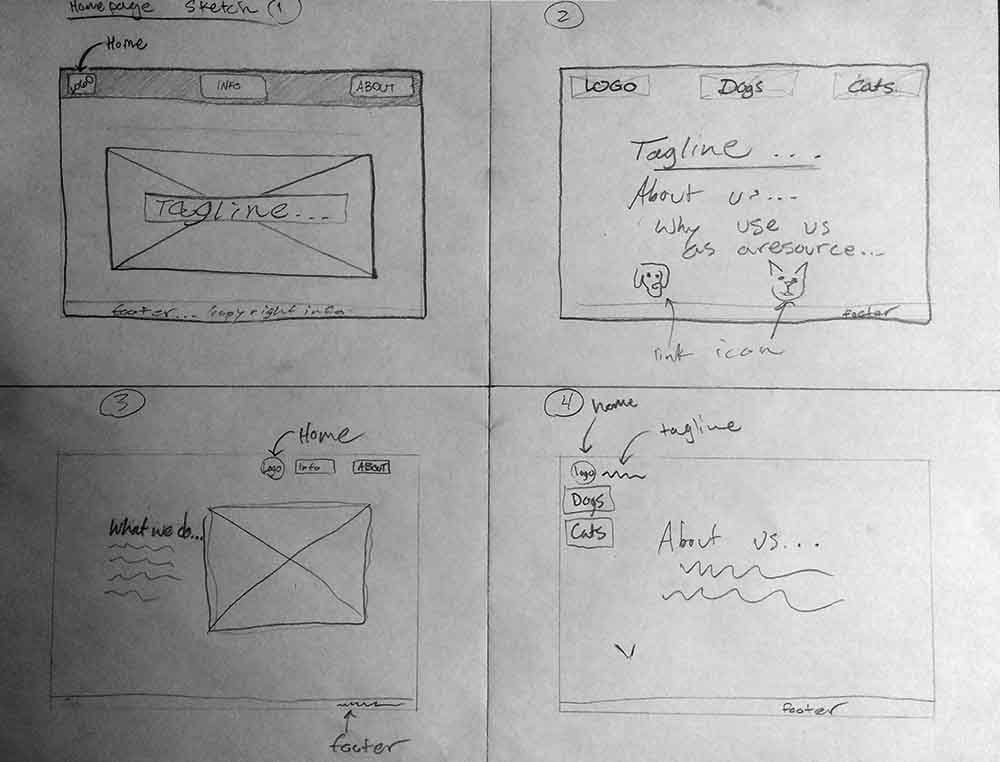 Homepage Sketch (1)
Home
LOGO
INFO
ABOUT
Tagline...
footer... Copyright info
2
LOGO
Dogs
Cats
Tagline ....
About us....
Why use us
as a resource...
footer
link icon
3
Home
Logo
Info
ABOUT
What we do...
footer
4
home
tagline
logo
Dogs
Cats
About us...
footer